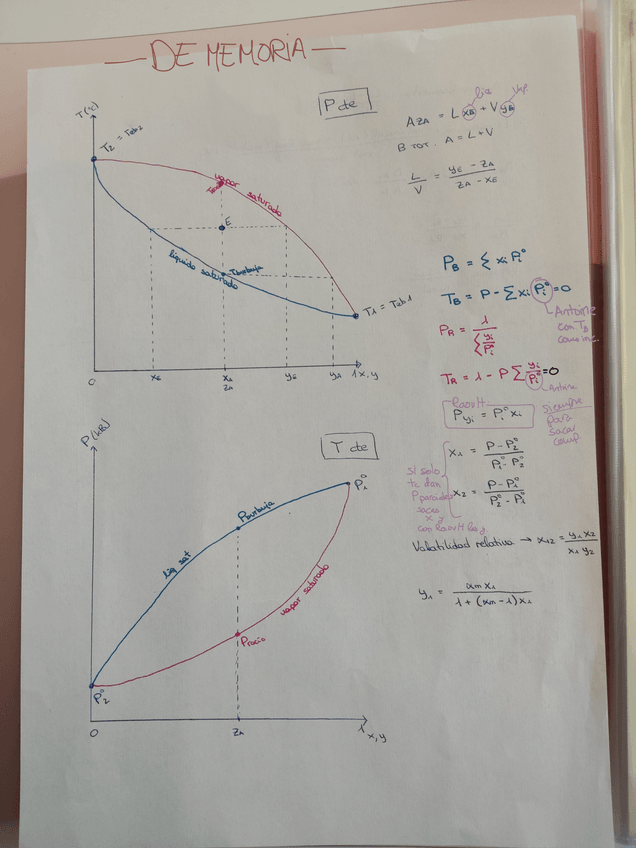 — DE MEMORIA —
P cte
T(°C)
T2 = Teb2
vapor saturado
E
líquido saturado
Tburbuja
T1 = Teb1
0
xE
x1
zA
yE
y1
1 x, y
liq
vap.
AzA = L xA + V yA
B TOT. A = L + V
L/V = (yE - zA)/(zA - xE)
PB = Σ xi Pi°
TB = P - Σ xi Pi° = 0
Antoine
con TB
como inc.
PR = 1/(Σ yi/Pi°)
TR = 1 - P Σ yi/Pi° = 0
Antoine
Raoult
P yi = Pi° xi
siempre
para
sacar
comp
T cte
P(kPa)
P1°
Pburbuja
liq sat
vapor saturado
Procío
P2°
0
zA
1 x, y
si solo
te dan
P parcial
sacas
x y
con Raoult las y
x1 = (P - P2°)/(P1° - P2°)
x2 = (P - P1°)/(P2° - P1°)
Volatilidad relativa → α12 = (y1 x2)/(x1 y2)
y1 = (αm x1)/(1 + (αm - 1) x1)